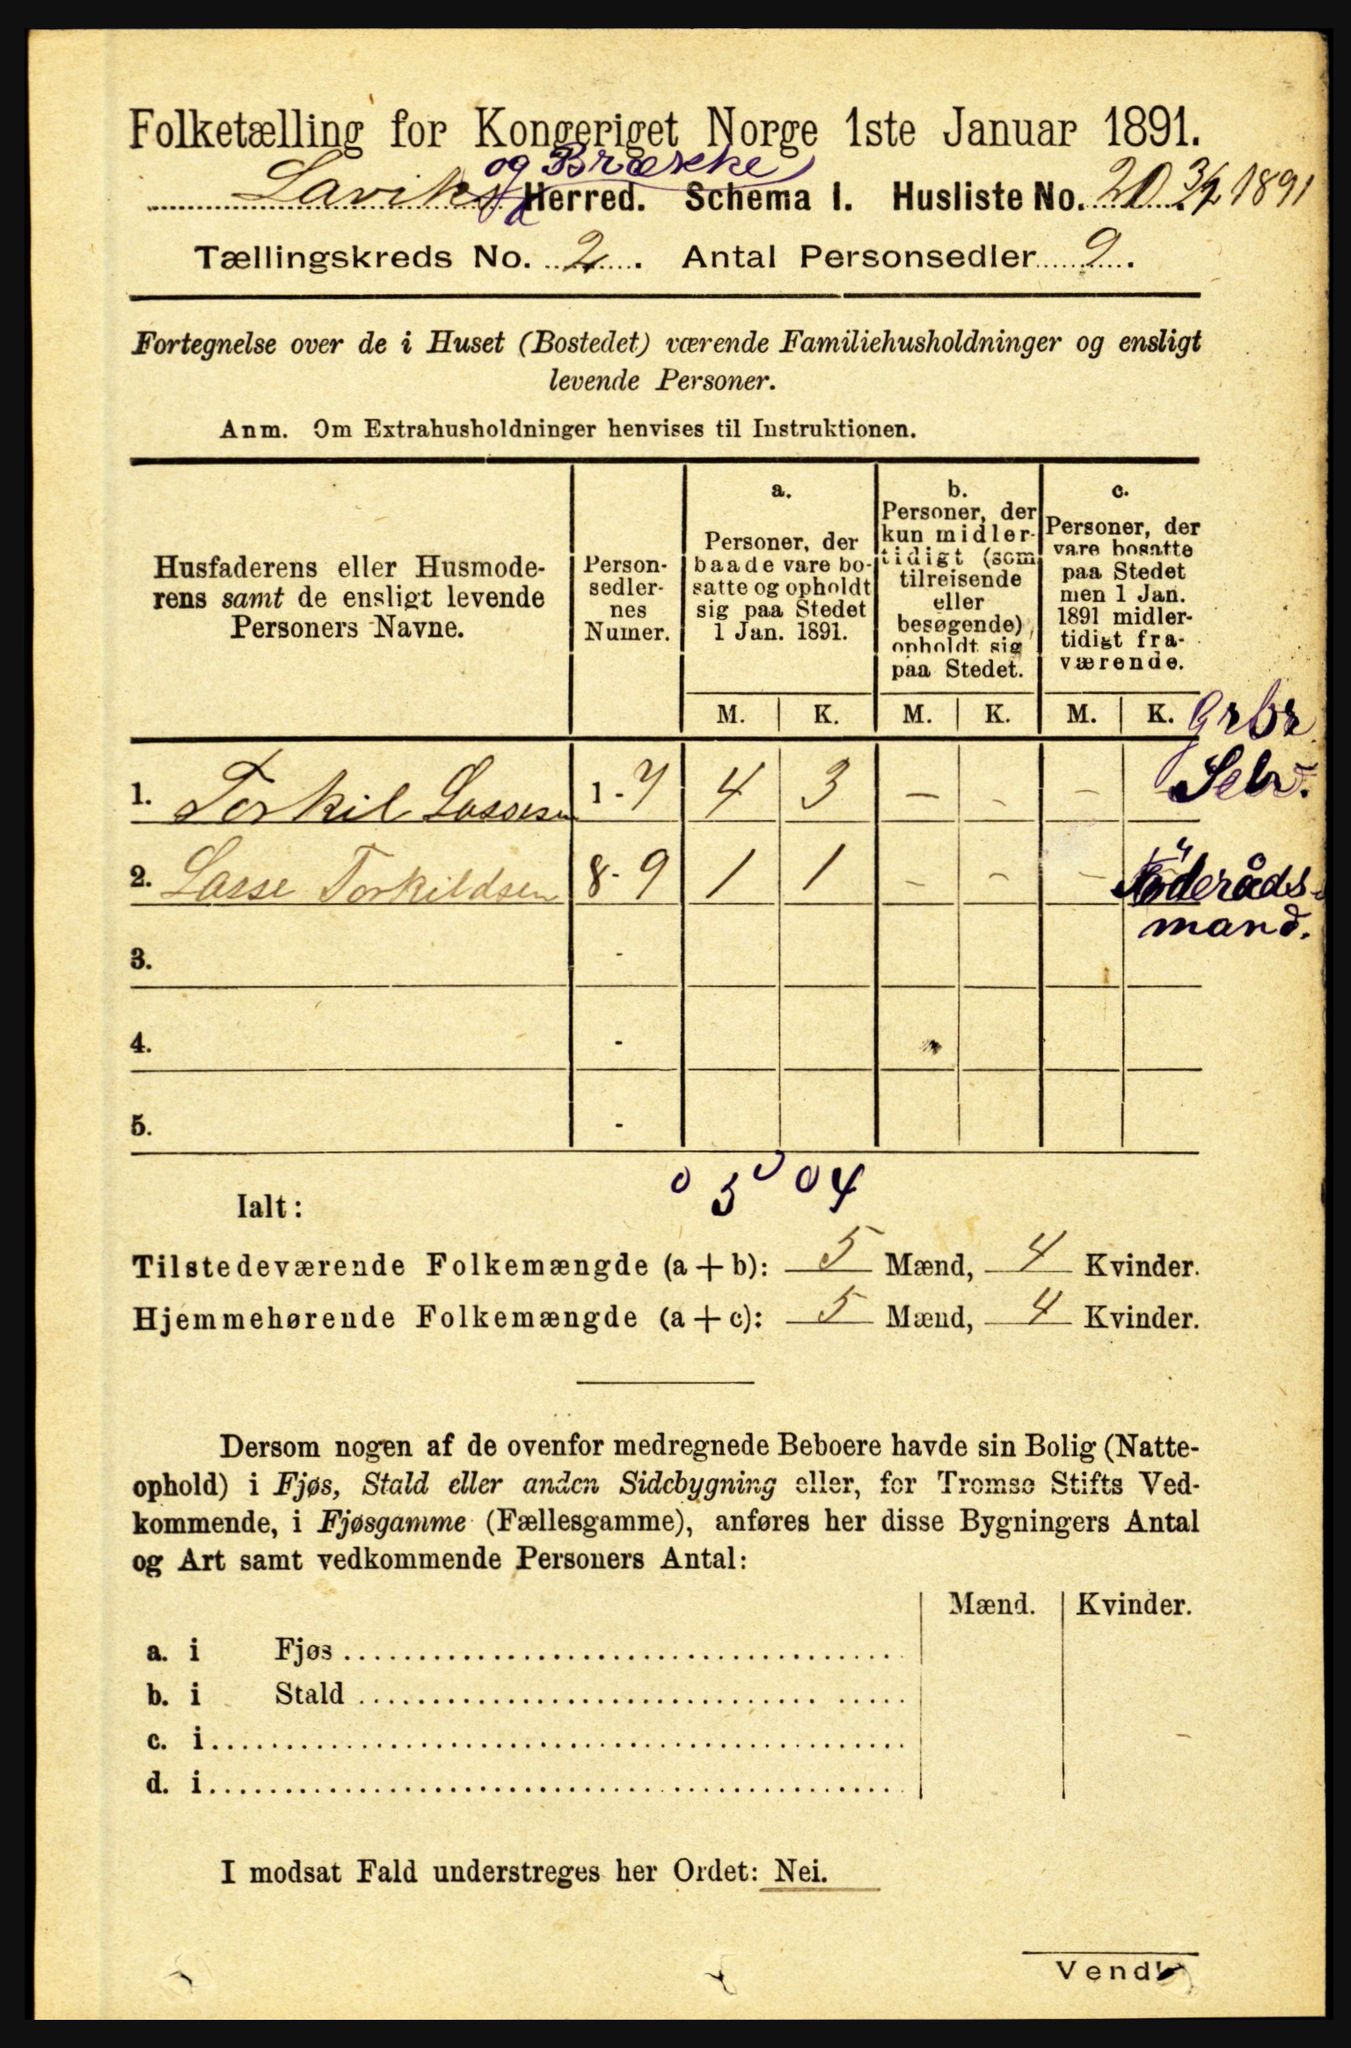 Folketælling for Kongeriget Norge 1ste Januar 1891.
og Brække
Laviks Herred. Schema 1. Husliste No. 20. 3/2 1891
Tællingskreds No. 2. Antal Personsedler 9.
Fortegnelse over de i Huset (Bostedet) værende Familiehusholdninger og ensligt
levende Personer.
Anm. Om Extrahusholdninger henvises til Instruktionen.
Husfaderens eller Husmode-
rens samt de ensligt levende
Personers Navne.
Person-
sedler-
nes
Numer.
a.
Personer, der
baade vare bo-
satte og opholdt
sig paa Stedet
1 Jan. 1891.
b.
Personer, der
kun midler-
tidigt (som
tilreisende
eller
besøgende)
opholdt sig
paa Stedet.
c.
Personer, der
vare bosatte
paa Stedet
men 1 Jan.
1891 midler-
tidigt fra-
værende.
M. K. M. K. M. K. Grbr
1. Torkil Lassesen 1 - 7 4 3 - - - Selv.
2. Lasse Torkildsen 8 - 9 1 1 - - - Föderåds-
mand.
3. -
4. -
5. -
0 5 0 0 4
Ialt:
Tilstedeværende Folkemængde (a + b): 5 Mænd, 4 Kvinder.
Hjemmehørende Folkemængde (a + c): 5 Mænd, 4 Kvinder.
Dersom nogen af de ovenfor medregnede Beboere havde sin Bolig (Natte-
ophold) i Fjøs, Stald eller anden Sidebygning eller, for Tromsø Stifts Ved-
kommende, i Fjøsgamme (Fællesgamme), anføres her disse Bygningers Antal
og Art samt vedkommende Personers Antal:
Mænd. Kvinder.
a. i Fjøs
b. i Stald
c. i
d. i
I modsat Fald understreges her Ordet: Nei.
Vend!